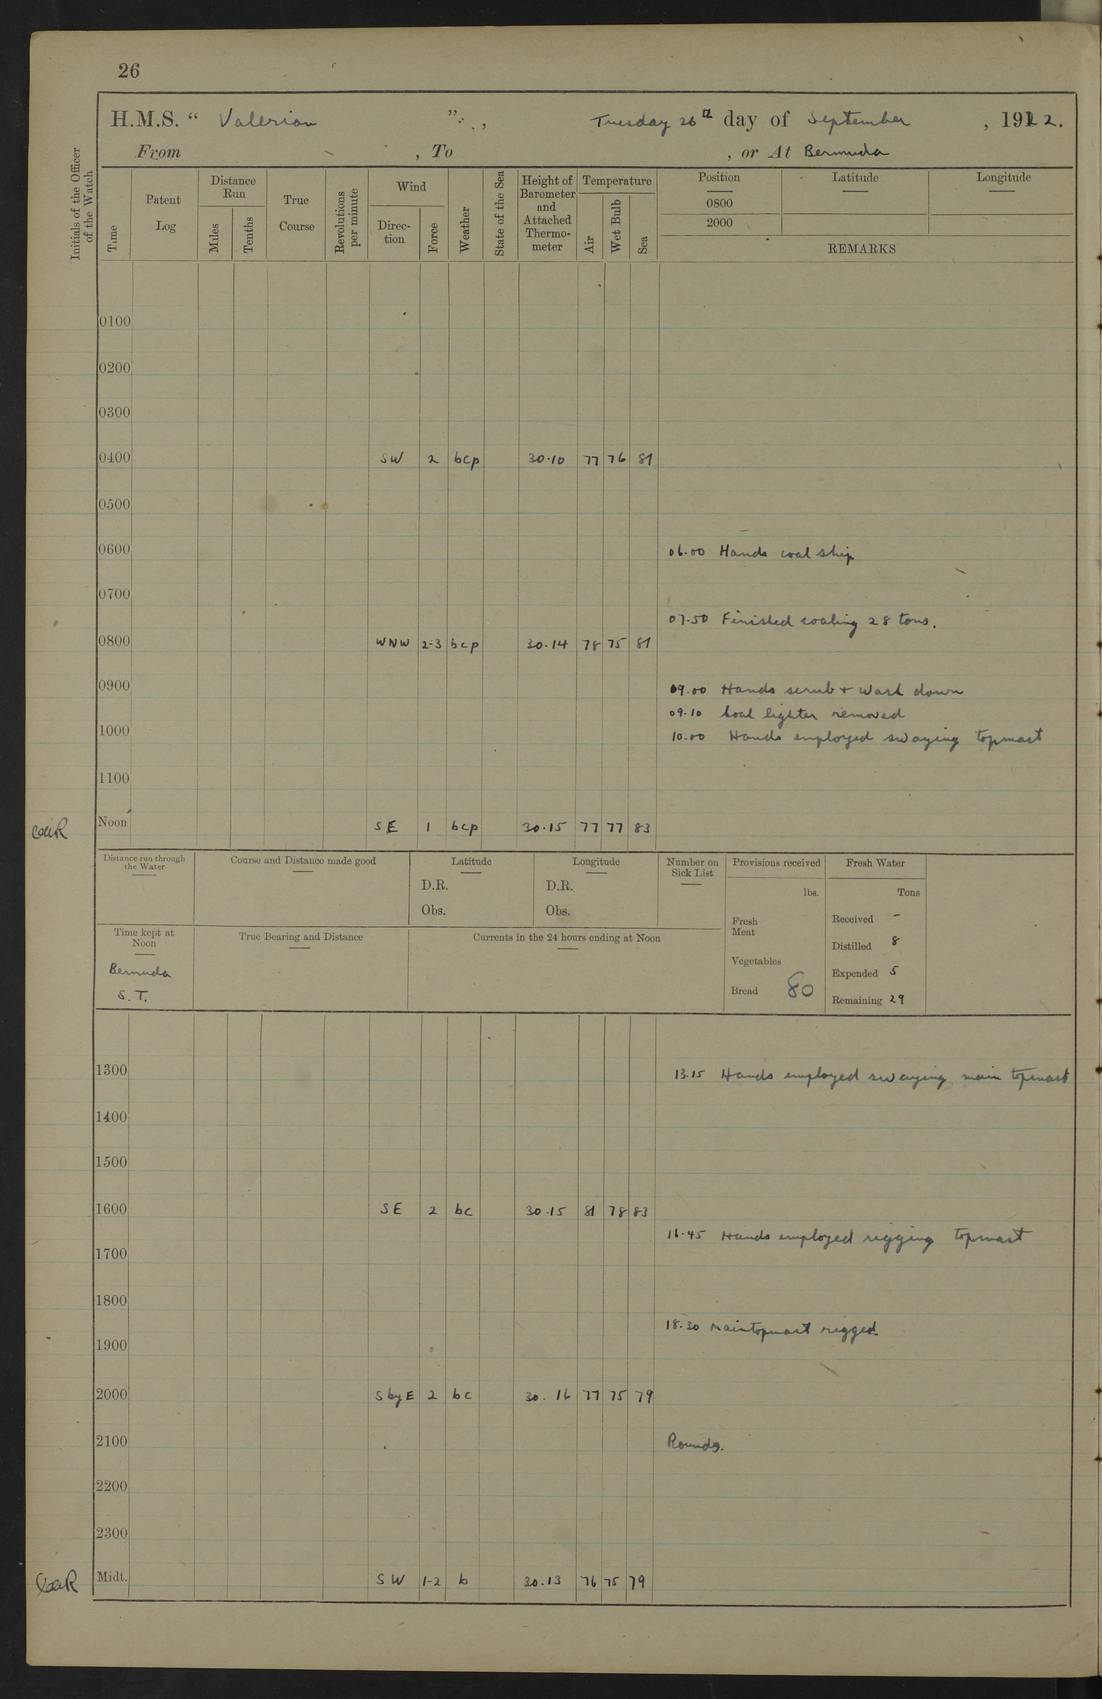 26
H.M.S. “ Valerian ”. , Tuesday 26th day of September , 1922.
From , To , or At Bermuda
Initials of the Officer of the Watch
Time
Patent Log
Distance Run
Miles
Tenths
True Course
Revolutions per minute
Wind
Direc-tion
Force
Weather
State of the Sea
Height of Barometer and Attached Thermo-meter
Temperature
Air
Wet Bulb
Sea
Position Latitude Longitude
0800
2000
REMARKS
0100
0200
0300
0400 SW 2 bcp 30.10 77 76 81
0500
0600 06.00 Hands coal ship
0700
07.50 Finished coaling 28 tons.
0800 WNW 2-3 bcp 30.14 78 75 81
0900 09.00 Hands scrub + wash down
09.10 Coal lighter removed
1000 10.00 Hands employed swaying topmast
1100
Noon SE 1 bcp 30.15 77 77 83
Distance run through the Water
Course and Distance made good
Latitude
D.R.
Obs.
Longitude
D.R.
Obs.
Number on Sick List
Provisions received
lbs.
Fresh Meat
Vegetables
Bread 80
Fresh Water
Tons
Received -
Distilled 8
Expended 5
Remaining 29
Time kept at Noon
Bermuda
S.T.
True Bearing and Distance
Currents in the 24 hours ending at Noon
1300 13.15 Hands employed swaying main topmast
1400
1500
1600 SE 2 bc 30.15 81 78 83
16.45 Hands employed rigging topmast
1700
1800
18.30 Maintopmast rigged.
1900
2000 S by E 2 bc 30.16 77 75 79
2100 Rounds.
2200
2300
Midt. SW 1-2 b 30.13 76 75 79